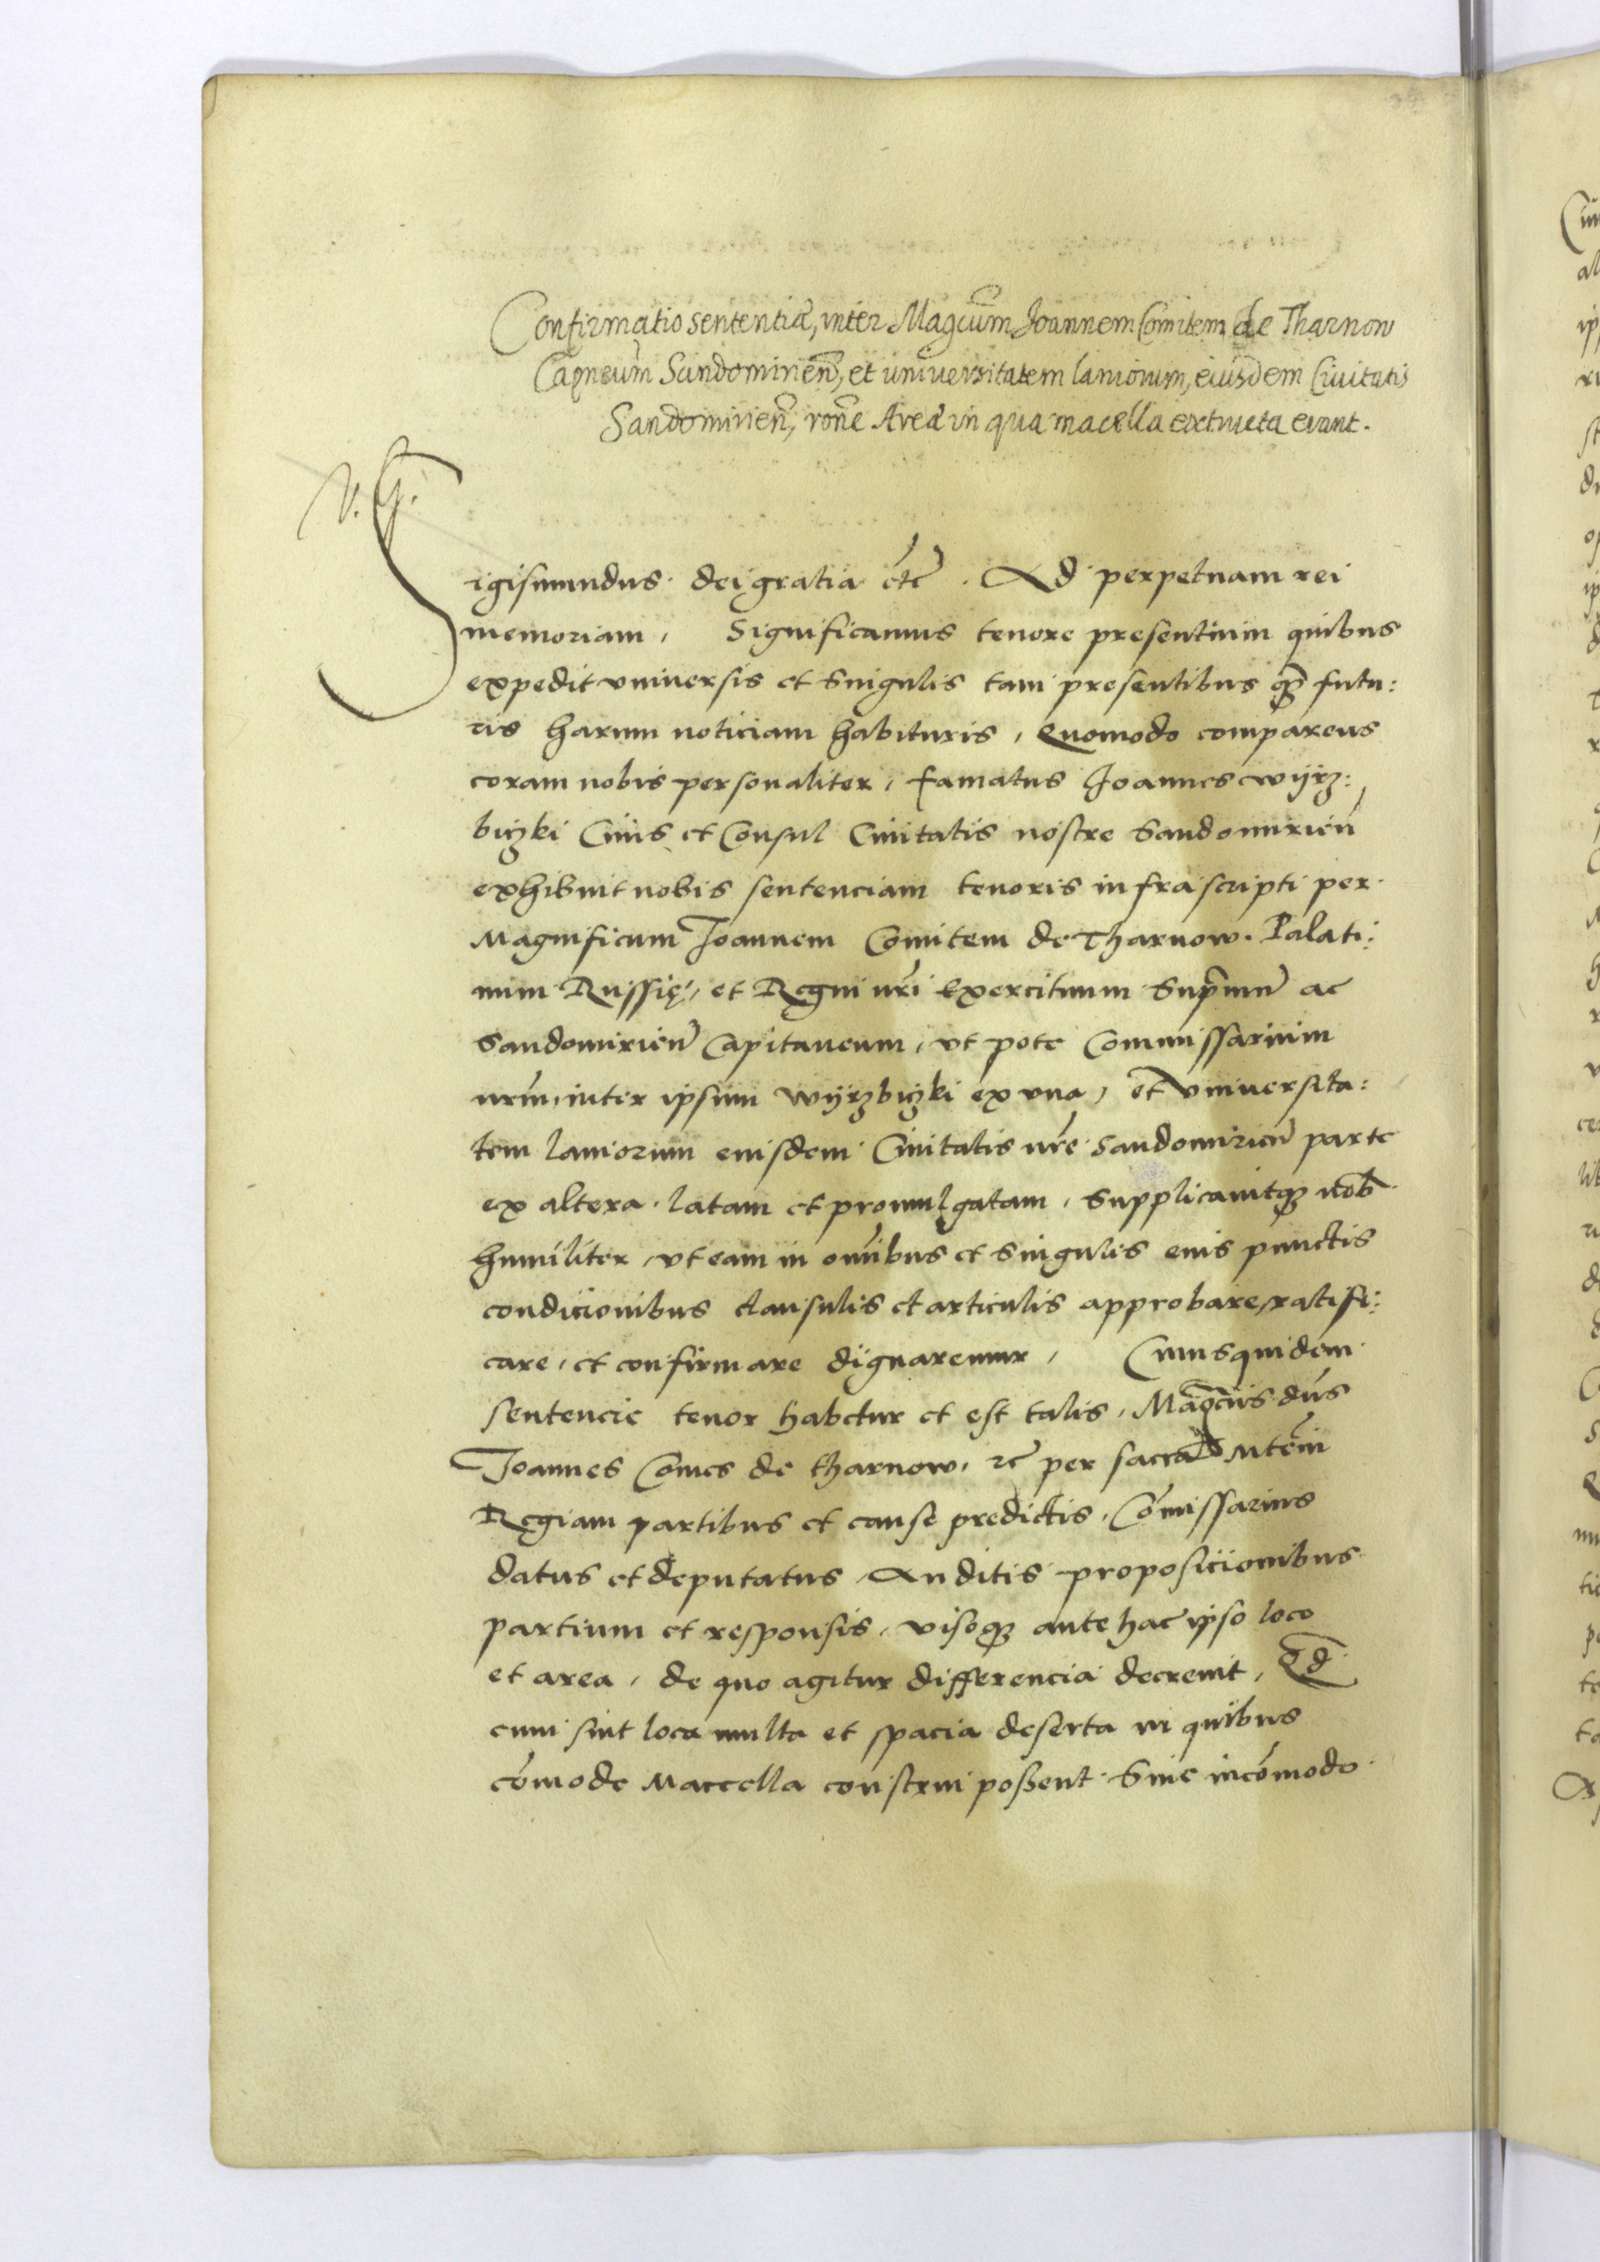 Confirmatio sententiæ, inter Magcum Joannem Comitem de Tharnow
Capneum Sandomirien, et universitatem laniorum, eiusdem Civitatis
Sandomirien, rone Areæ in qua macella extructa erant.
V. G.
Sigismundus dei gratia etc. Ad perpetuam rei
memoriam, Significamus tenore presentium quibus
expedit vniuersis et singulis tam presentibus q̃ futu:
ris harum noticiam habituris, Quomodo comparens
coram nobis personaliter, famatus Joannes Wyrz:
biczki Ciuis et Consul Ciuitatis nostre Sandomirien̄
exhibuit nobis sentenciam tenoris infrascripti per
Magnificum Joannem Comitem de Tharnow. Palati:
num Russię, et Regni nr̄i Exercituum Supr̄mum ac
Sandomirien̄ Capitaneum, vt pote Commissarium
nr̄m, inter ipsum Wyrzbiczki ex vna, et Vniuersita:
tem laniorum eiusdem Ciuitatis nr̄e Sandomirien̄ parte
ex altera latam et promulgatam, Supplicauitq₃ nob̄
humiliter, vt eam in om̄ibus et singulis eius punctis
condicionibus clausulis et articulis approbare, ratifi:
care, et confirmare dignaremur, Cuiusquidem
sentencie tenor habetur et est talis, Mag̃cus dn̄s
Joannes Comes de tharnow, etc per sacrā Mtem̄
Regiam partibus et cause predictis, Com̄issarius
datus et deputatus, Auditis proposicionibus
partium et responsis, visoq₃ ante hac ipso loco
et area, de quo agitur differencia decreuit, Qd̄
cum sint loca multa et spacia deserta in quibus
com̄ode Maccella construi possent sine incom̄odo